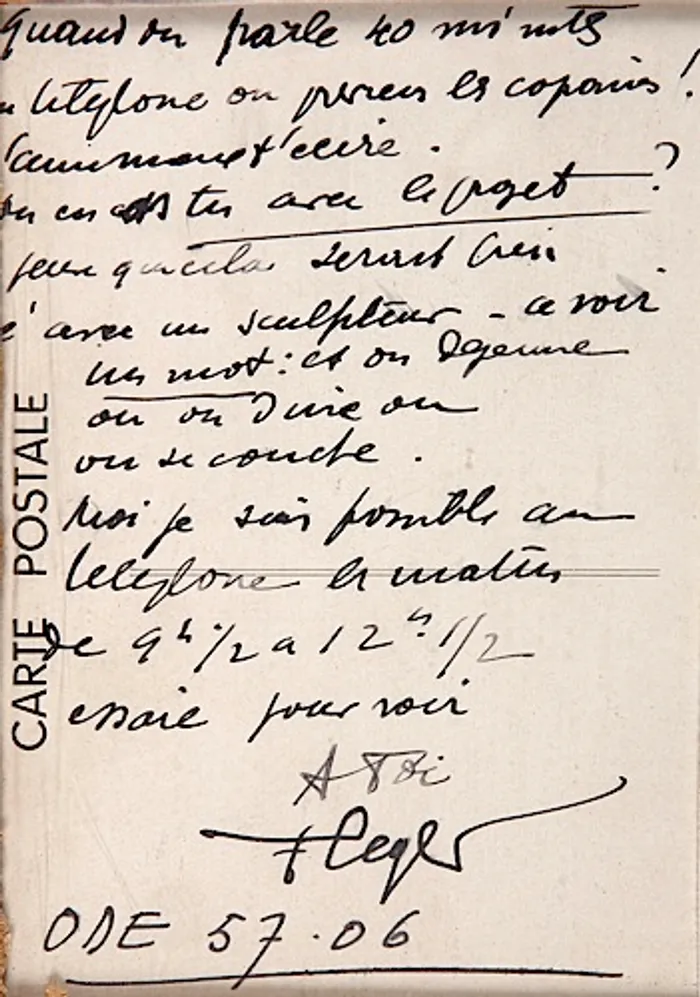 Quand on parle 40 minuts
telefone on perien les copains !
t'ecrire .
en es tu avec le projet ?
que cela serait bien
avec un sculpteur - a voir
un mot : et on dejeune
ou on dine ou
on se couche .
Moi je suis possible au
telefone le matin
de 9h 1/2 a 12h 1/2
essaie pour voir
A Toi
FLeger
ODE 57.06
CARTE POSTALE